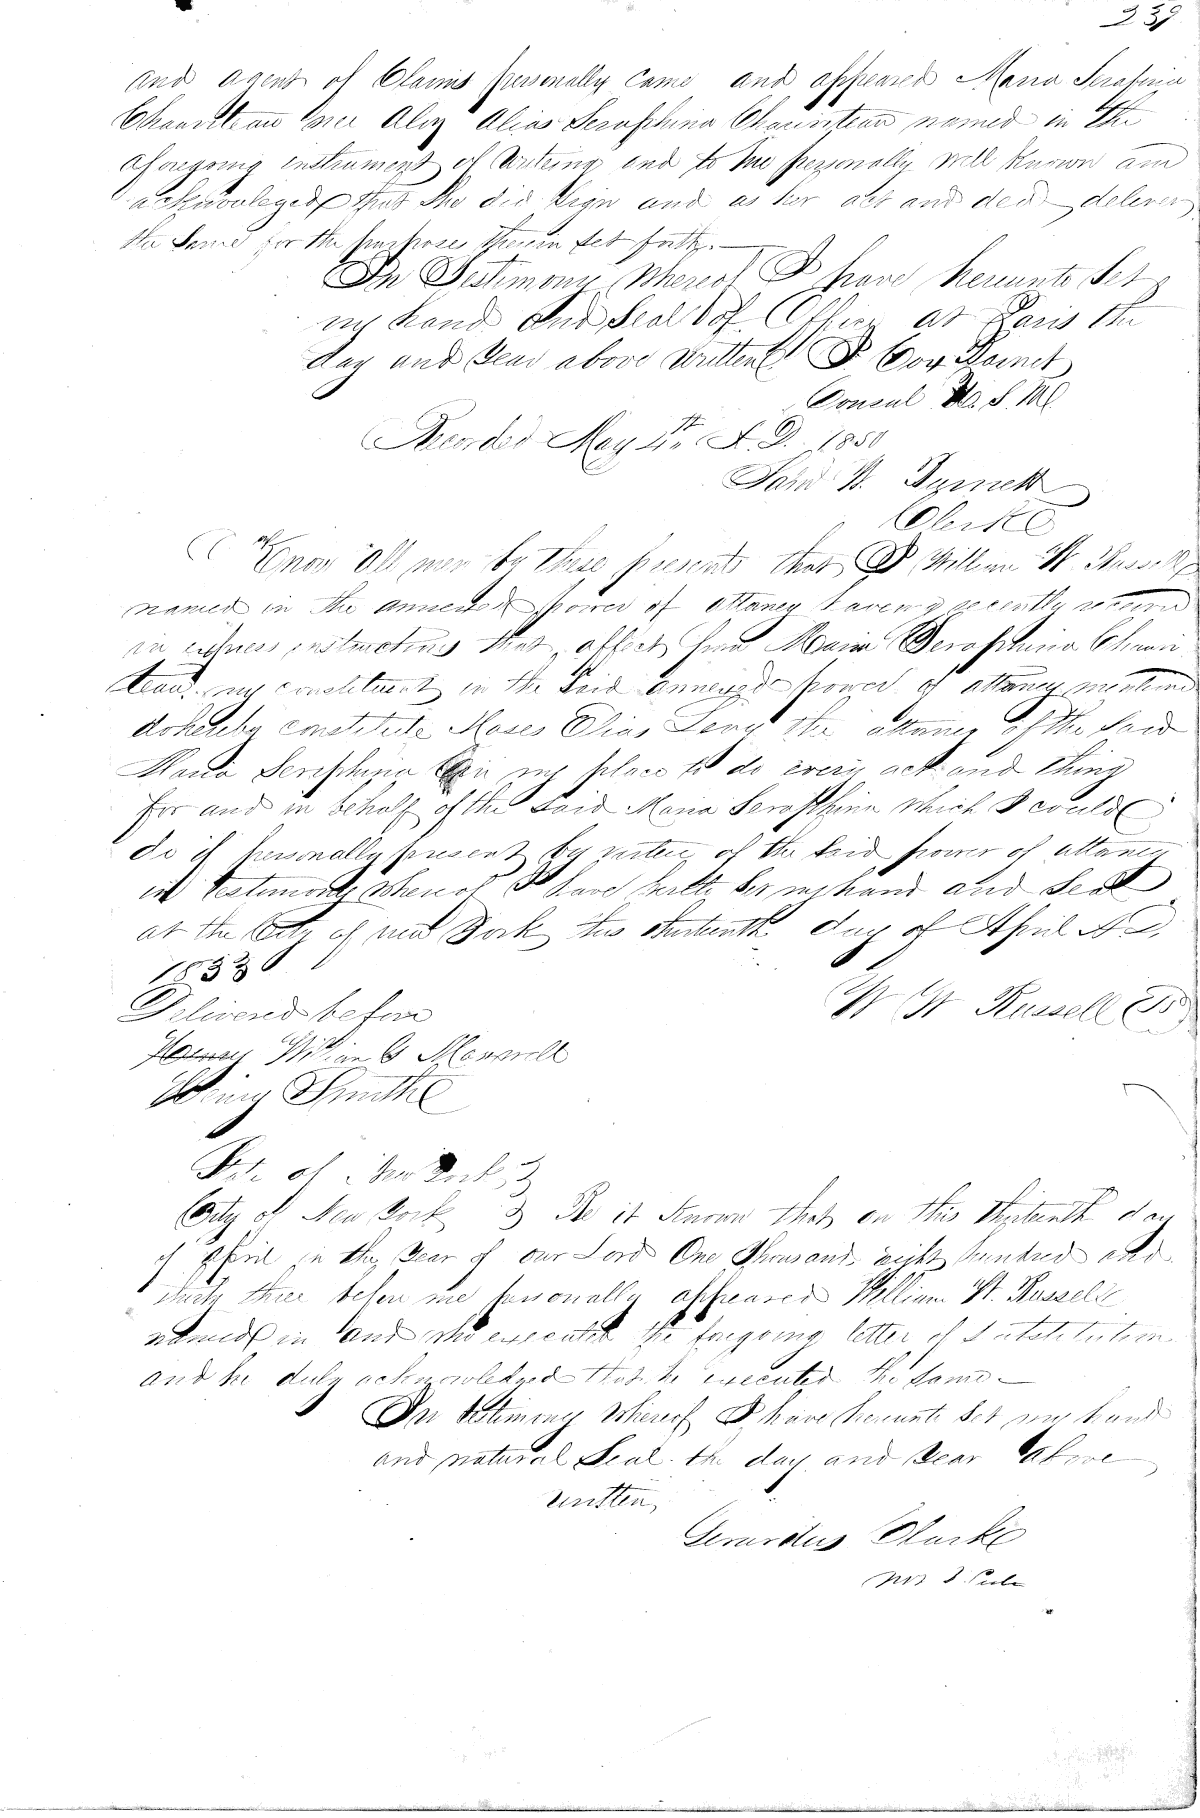 239
and agent of Claims personally came and appeared Maria Serafina
Chauviteau nee Aloy Alias Seraphina Chauviteau named in the
aforegoing instrument of Writeing and to me personally well known and
acknowleged that she did sign and as her act and deed deliver
the same for the purposes therein set forth.
In Testimony Whereof I have hereunto Set
my hand and Seal of Office at Paris the
day and Year above written J. Cox Barnet
Consul U. S. A.
Recorded May 4th A. D. 1850
Clerk
Know all men by these presents that I William W. Russell
named in the annexed power of attorney having recently received
in express instructions that affect from Maria Seraphina Chauvi
teau my constituent in the Said annexed power of attorney mentioned
do hereby constitute Moses Elias Levy the attorney of the Said
Maria Seraphina in my place to do every act and thing
for and in behalf of the Said Maria Seraphina which I could
do if personally present by virtue of the Said power of attorney
in testimony whereof I have hereto Set my hand and Seal
at the City of new York this thirteenth day of April A. D.
1833
W W Russell
Delivered before
Henry William G Maxwell
Henry Smith
State of New York }
City of New York } Be it Known that on this thirteenth day
of April in the Year of our Lord One Thousand eight hundred and
thirty three before me personally appeared William W. Russell
named in and who executed the foregoing letter of Substitution
and he duly acknowledged that he executed the Same
In testimony Whereof I have hereunto Set my hand
and natural Seal the day and Year above
written,
Gerardus Clark